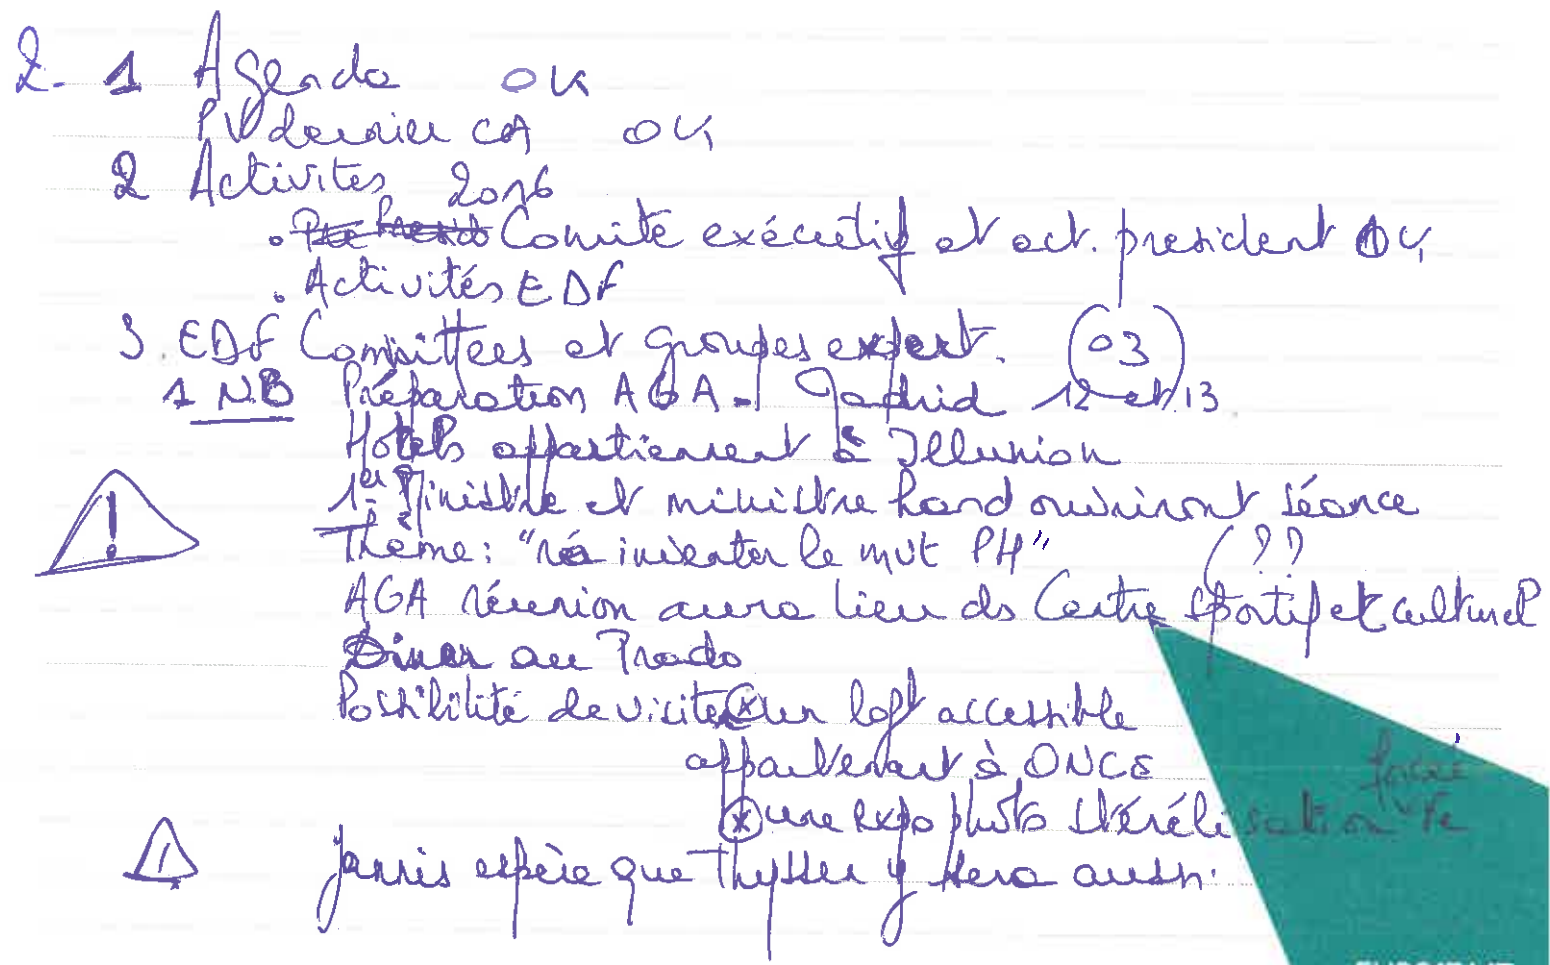 2. 1 Agenda OK
PV dernier CA OK
2 Activités 2016
. Comité exécutif et act. president OK
. Activités EDF
3 EDF Committees et groupes expert. (03)
1 NB Préparation AGA - Madrid 12 et 13
Hotels appartiennent à Illunion
1er Ministre et ministre hand ouvriront séance
Thème: "ré inventer le mvt PH" (??)
AGA réunion aura lieu ds Centre sportif et culturel
Diner au Prado
Possibilité de visiter * un loft accessible
appartenant à ONCE
forcée
* une expo photo stérélisation Fe
! Jannis espère que Thyssen y sera aussi.